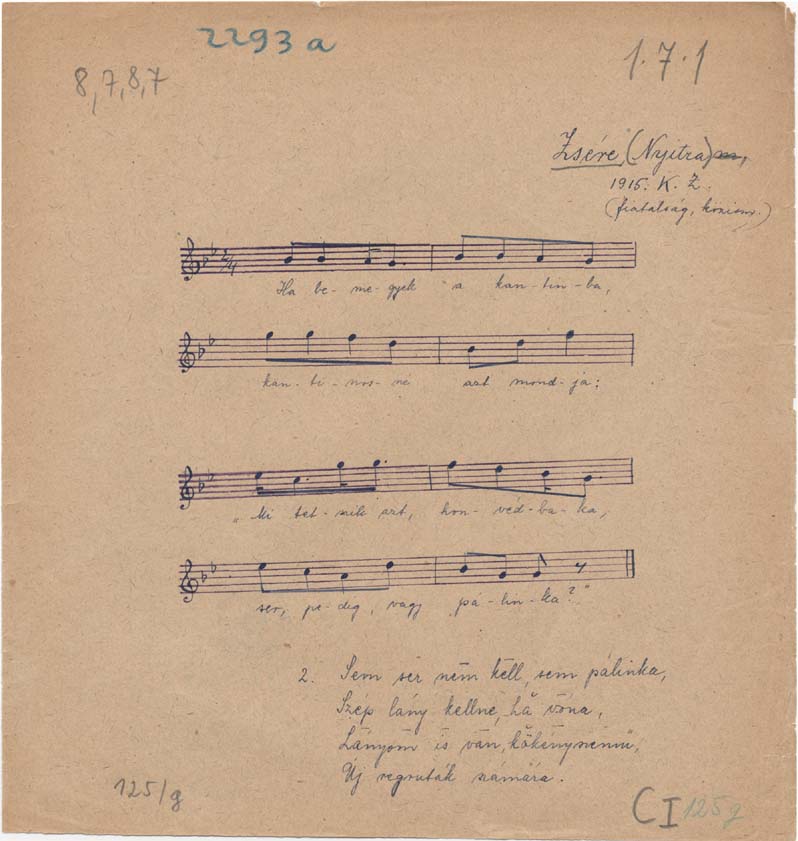 2293 a
8,7,8,7
1.7.1
Zsére (Nyitra)
1915. K. Z.
(fiatalság, közism.)
2/4
Ha be- me- gyek a kan- tin- ba,
kan- ti- nos- né azt mond- ja:
„Mi tet- szik azt, hon- véd- ba- ka,
ser, pe- dig, vagy pá- lin- ka?"
2. Sem sër nëm këll, sem pálinka,
Szép lány këllne, hă vóna,
Lányom is van, kőkényszemű,
Új regruták számára.
125/g
CI 125g